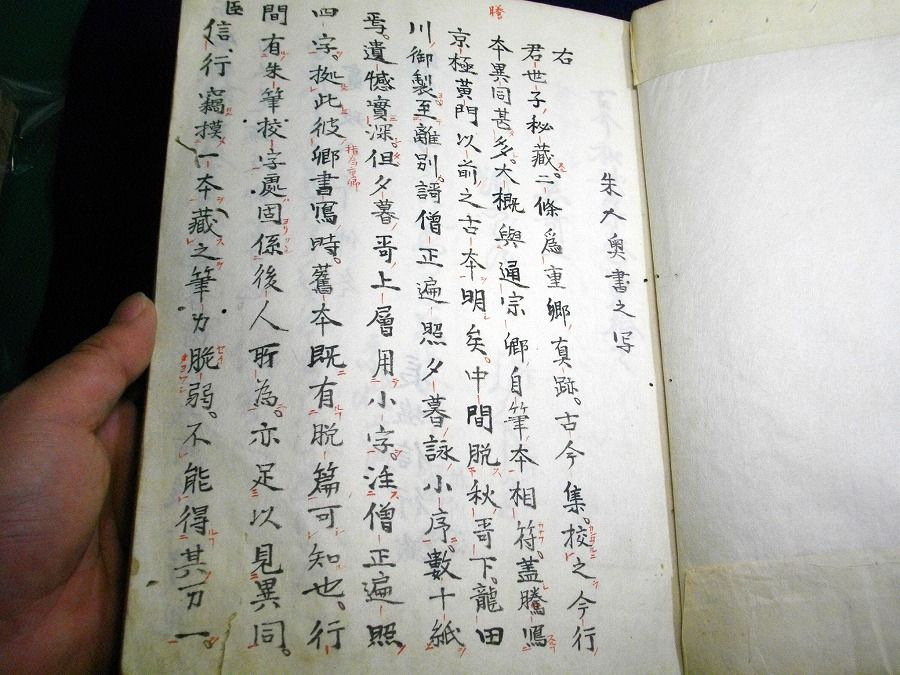 朱人奥書之写
右
君世子秘藏。二條爲重卿眞跡。古今集。挍之今行
本異同甚多。大概與通宗卿自筆本相符。蓋騰寫
京極黄門以前之古本明矣。中間脱秋哥下。龍田
川御製至離別謌僧正遍照夕暮詠小序。數十紙
焉。遺憾實深。但夕暮哥上層用小字。注僧正遍照
四字。拠此彼卿書寫時。舊本既有脱篇可知也。行
間有朱筆挍字處固係後人所為。亦足以見異同。
臣
信行竊摸一本藏之筆力脆弱。不能得其万一